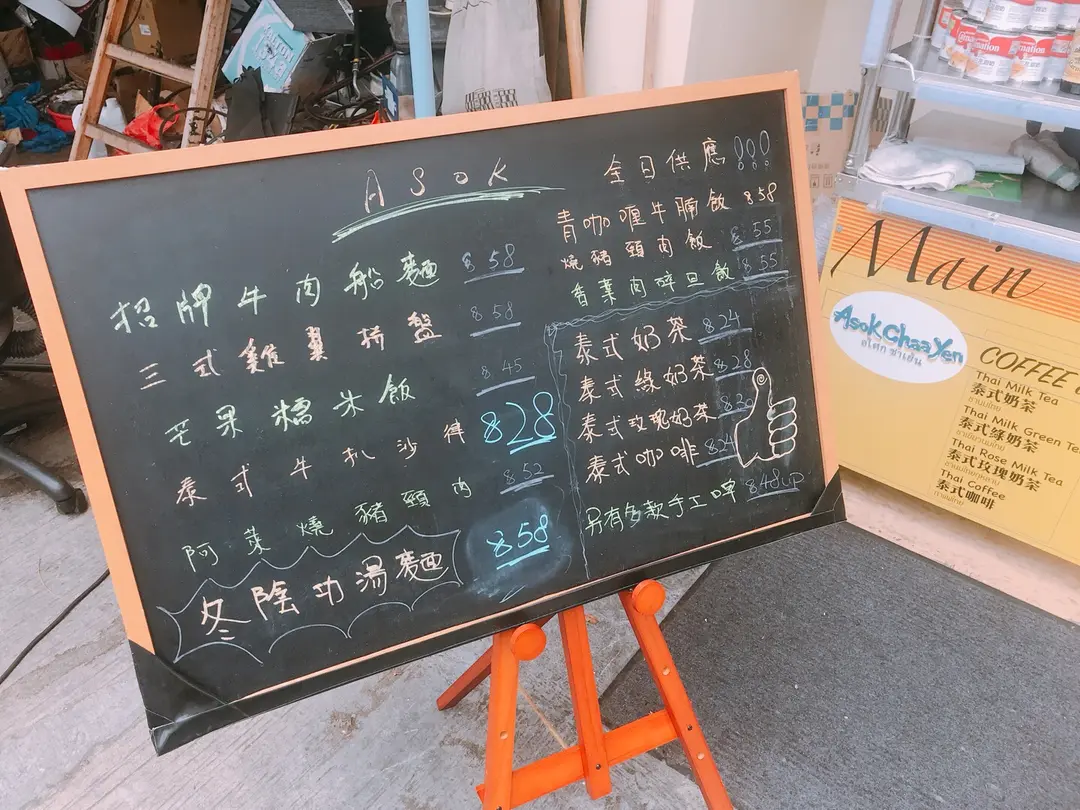 ASOK
招牌牛肉船麵 $58
三式雞翼拼盤 $58
芒果糯米飯 $45
泰式牛扒沙律 $28
阿萊燒豬頸肉 $52
冬陰功湯麵 $58
全日供應!!!
青咖喱牛腩飯 $58
燒豬頸肉飯 $55
香葉肉碎旦飯 $55
泰式奶茶 $24
泰式綠奶茶 $28
泰式玫瑰奶茶
泰式咖啡 $24
另有多款手工啤 $48up
Main
Asok ChaaYen
อโศก ชาเย็น
COFFEE
Thai Milk Tea
泰式奶茶
Thai Milk Green Te
泰式綠奶茶
Thai Rose Milk Tea
泰式玫瑰奶茶
Thai Coffee
泰式咖啡